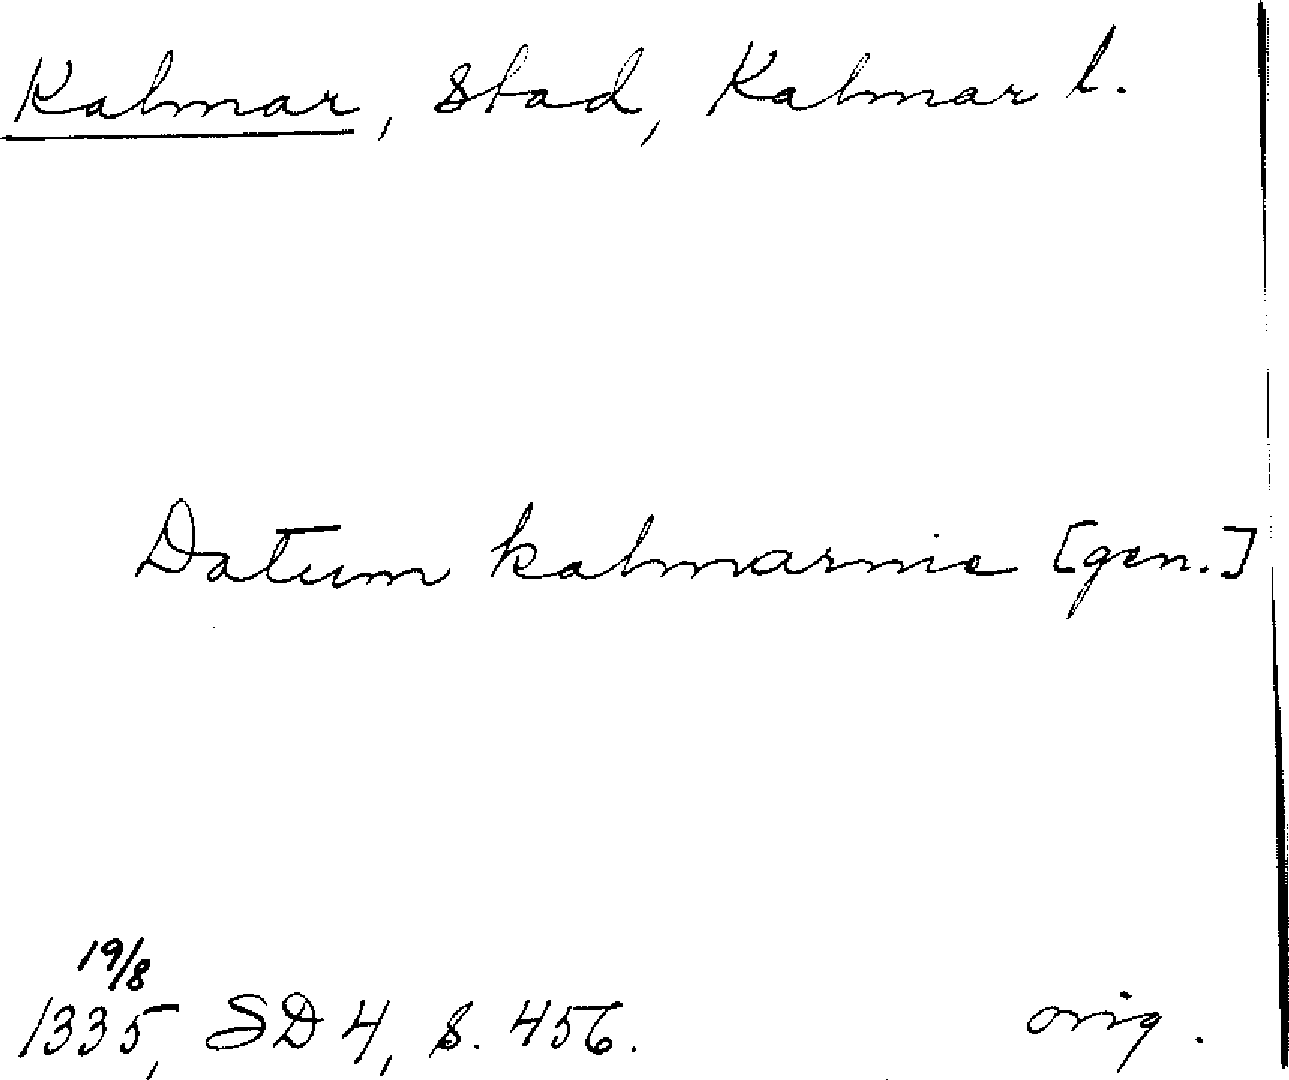 Kalmar, stad, Kalmar l.
Datum kalmarnie [gen.]
19/8
1335, SD 4, s. 456. orig.